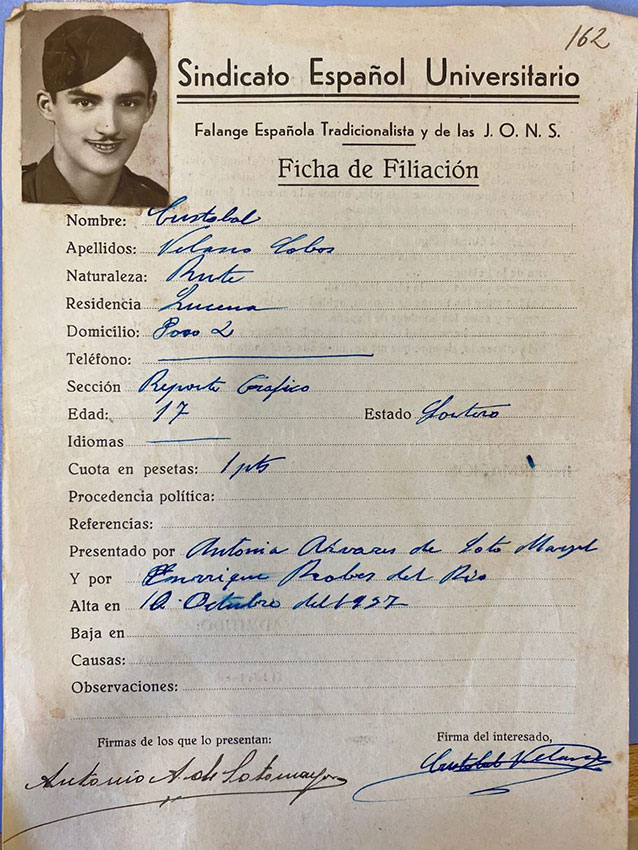 162
Sindicato Español Universitario
Falange Española Tradicionalista y de las J. O. N. S.
Ficha de Filiación
Nombre: Cristobal
Apellidos: Velasco Cobos
Naturaleza: Rute
Residencia Lucena
Domicilio: Poso 2
Teléfono:
Sección Reporte Grafico
Edad: 17 Estado Soltero
Idiomas
Cuota en pesetas: 1 pts
Procedencia política:
Referencias:
Presentado por Antonia Alvares de Soto Mayol
Y por Enrrique Robes del Rio
Alta en 10 Octubre del 1937
Baja en
Causas:
Observaciones:
Firmas de los que lo presentan: Firma del interesado,
Antonio A. de Sotomayor Cristobal Velasco